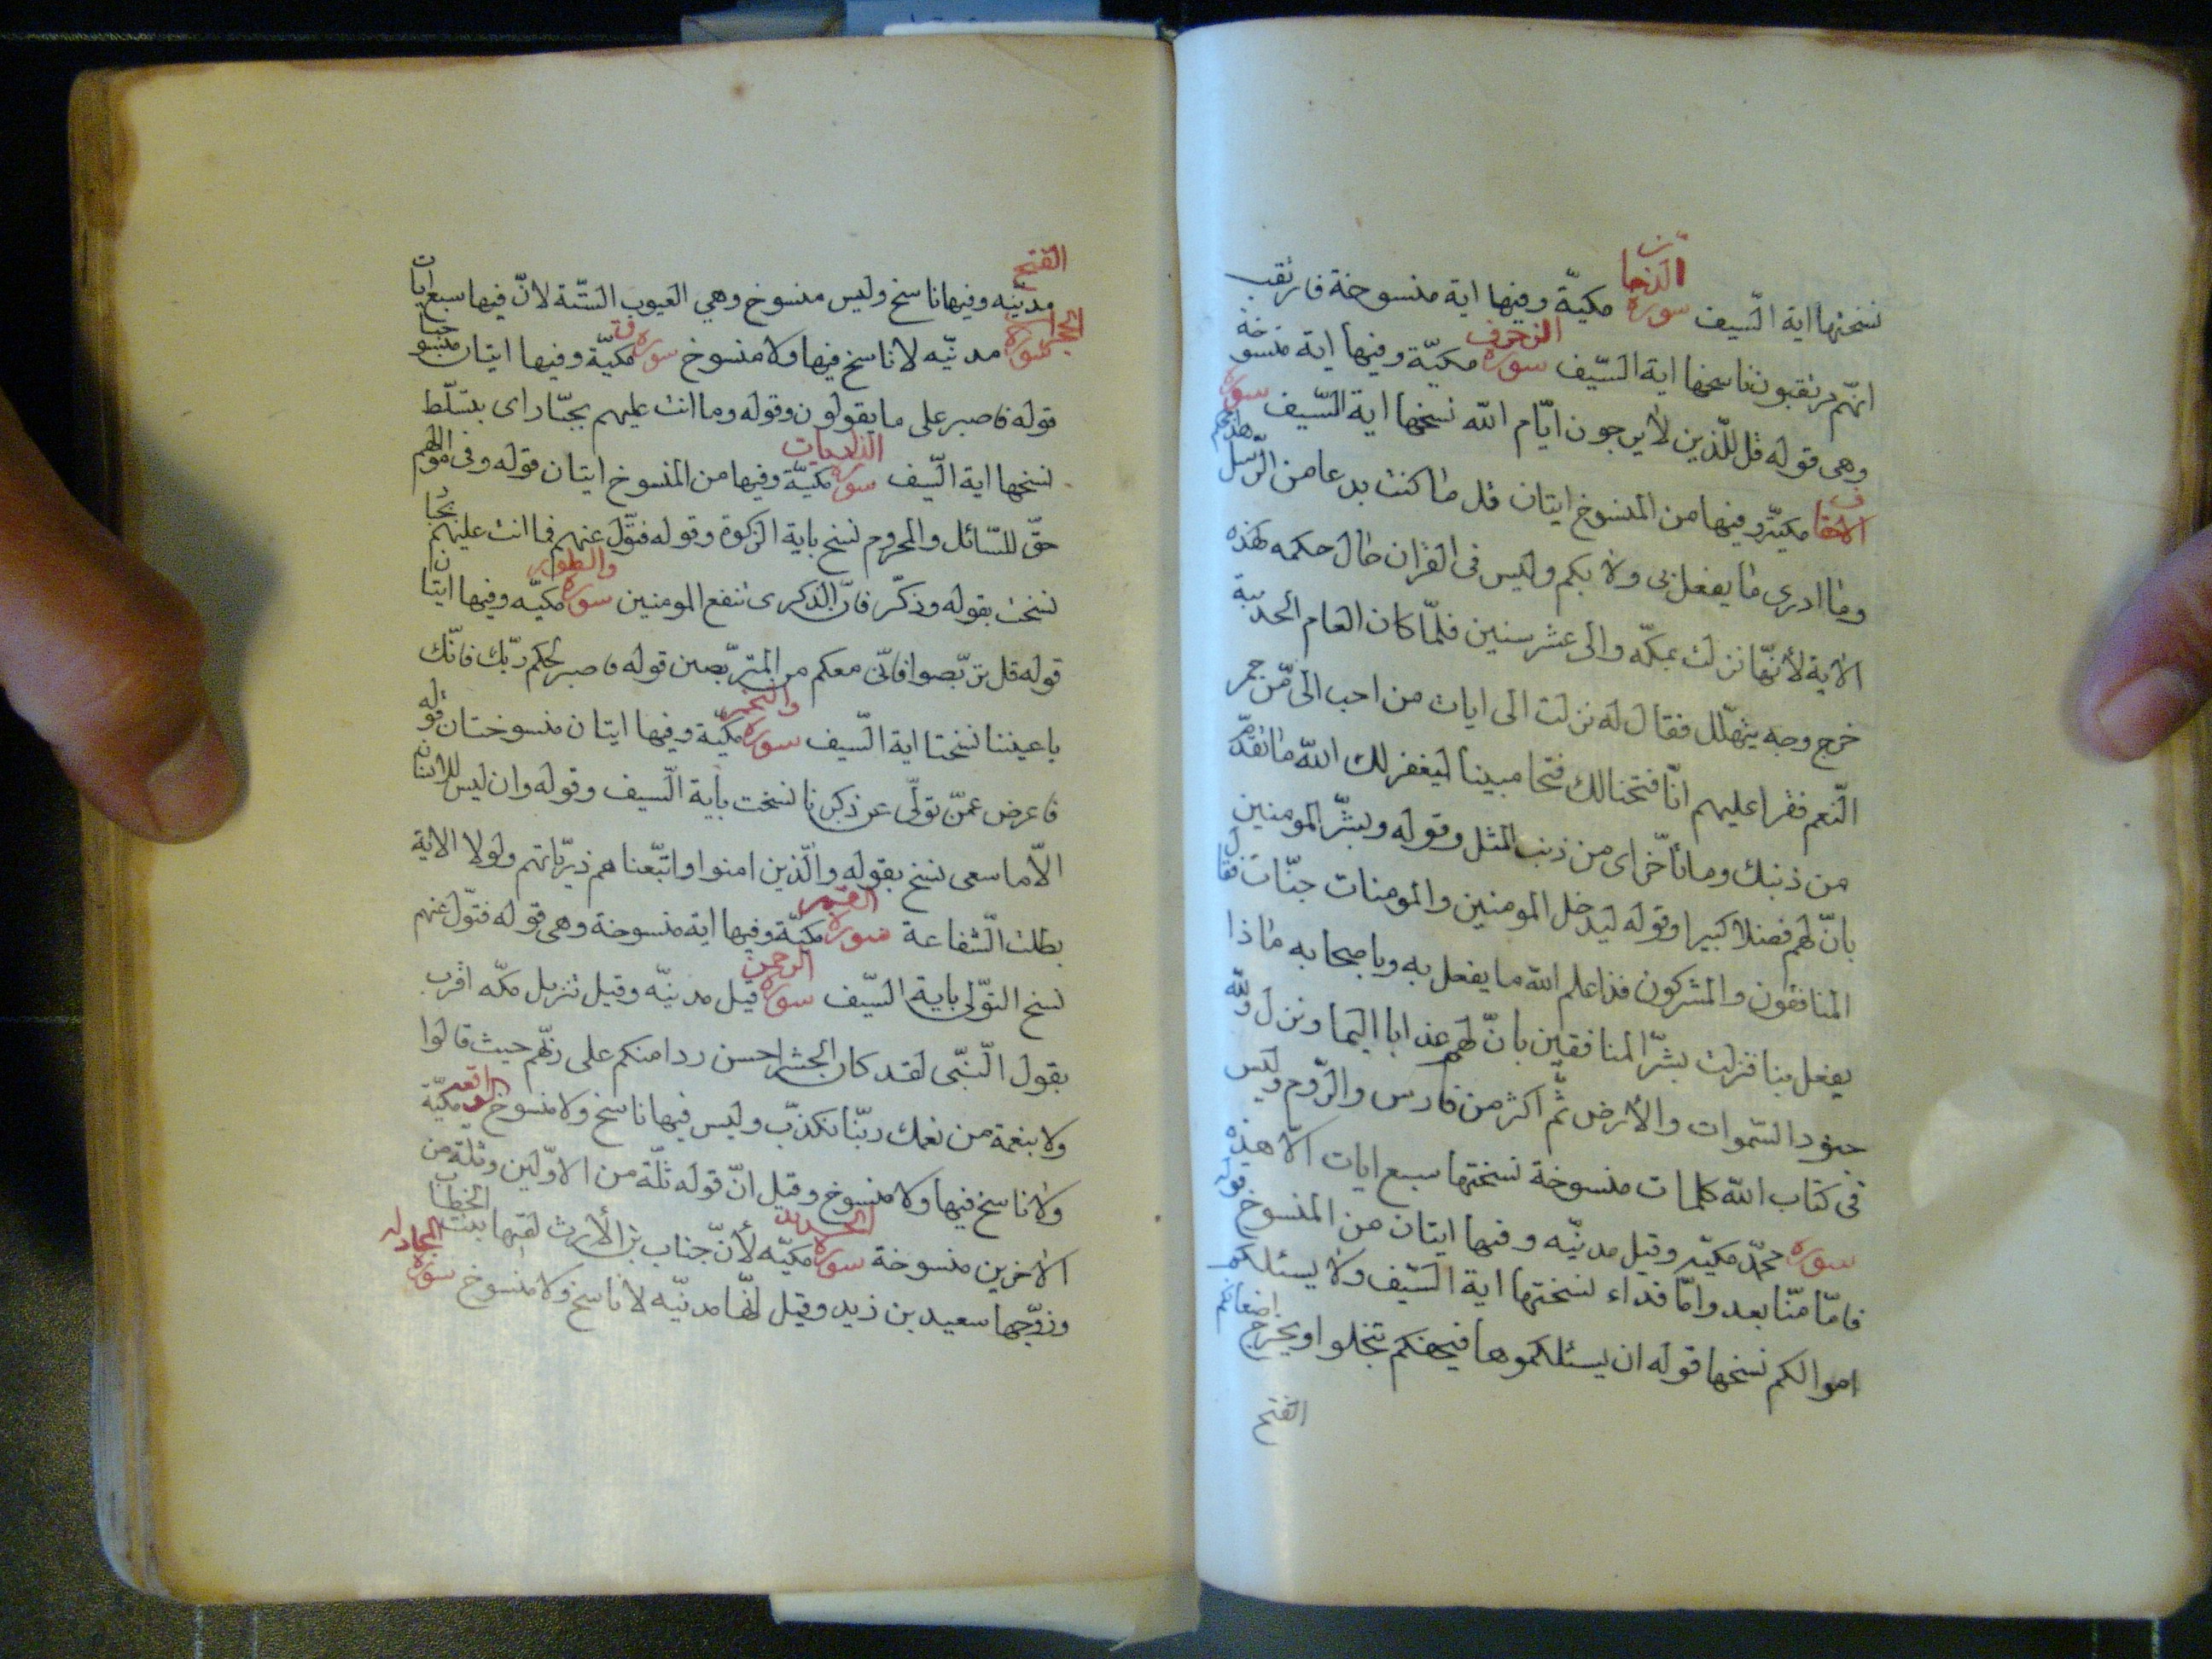 نسختها اية السّيف سورة الدخان مكيّة وفيها اية منسوخة فارتقب
انّهم مرتقبون ناسخها اية السّيف سورة الزخرف مكيّة وفيها اية منسوخة
وهى قوله قل للّذين لا يرجون ايّام الله نسخها اية السّيف سورة
الاحقاف مكيّة وفيها من المنسوخ ايتان قل ما كنت بدعا من الرّسل
وما ادرى ما يفعل بى ولا بكم وليس فى القران طال حكمه كهذه
الاية لأنّها نزلت بمكّه والى عشر سنين فلمّا كان العام الحديبة
خرج وجهه يتهلّل فقال له نزلت الى ايات من احب الىّ من حمر
النّعم فقرا عليهم انّا فتحنا لك فتحا مبينا ليغفر لك الله ما تقدّم
من ذنبك وما تأخّر اى من ذنب المثل وقوله وبشّر المومنين
بانّ لهم فضلا كبيرا وقوله ليدخل المومنين والمومنات جنّات فقال
المنافقون والمشركون فذا علم الله ما يفعل به وباصحابه ماذا
يفعل بنا فنزلت بشّر المنافقين بانّ لهم عذابا اليما ونزل ولله
جنود السّموات والأرض ثمّ اكثر من فارس والرّوم وليس
فى كتاب الله كلمات منسوخة نسختها سبع ايات الّا هذه
سورة محمّد مكيّه وقيل مدنيّه وفيها ايتان من المنسوخ قوله
فامّا منّا بعد وامّا فداء نسختها اية السّيف ولا يسئلكم
اموالكم نسخها قوله ان يسئلكموها فيحفكم تبخلوا ويخرج اضغانكم
الفتح
الفتح
مدنيّه وفيها ناسخ وليس منسوخ وهي العيوب الستّة لانّ فيها سبع ايات
سورة الحجرات مدنيّه لا ناسخ فيها ولا منسوخ سورة ق مكيّة وفيها ايتان منسوختان
قوله فاصبر على ما يقولون وقوله وما انت عليهم بجبّار اى بمتسلّط
نسخها اية السّيف سورة الذاريات مكيّة وفيها من المنسوخ ايتان قوله وفى اموالهم
حقّ للسّائل والمحروم نسخ باية الزكوة وقوله فتولّ عنهم فما انت عليهم
نسخت بقوله وذكّر فانّ الذكرى تنفع المومنين سورة والطور مكيّه وفيها ايتان
قوله قل تربّصوا فانّى معكم من المتربّصين قوله فاصبر لحكم ربّك فانّك
باعيننا نسختا اية السّيف سورة والنجم مكيّة وفيها ايتان منسوختان قوله
فاعرض عمّن تولّى عن ذكرنا نسخت بأية السيف وقوله وان ليس للانسان
الّا ما سعى نسخ بقوله والّذين امنوا واتبّعناهم ذريّاتهم ولولا الاية
بطلت الشّفاعة سورة القمر مكيّة وفيها اية منسوخة وهى قوله فتولّ عنهم
نسخ التولّى باية السّيف سورة الرحمن قيل مدنيّه وقيل تنزيل مكّه اقرب
بقول النّبّى لقد كان الجن احسن ردا منكم على ربّهم حيث قالوا
ولا بنعمة من نعمك ربّنا نكذّب وليس فيها ناسخ ولا منسوخ الواقعه مكيّة
ولا ناسخ فيها ولا منسوخ وقيل انّ قوله ثلّة من الاوّلين وثلّة من
الاخرين منسوخة سورة الحديد مكيّه لأنّ جناب بن الأرث لقيها بنت الخطاب
وزوّجها سعيد بن زيد وقيل انّها مدنيّه لا ناسخ ولا منسوخ سورة المجادله